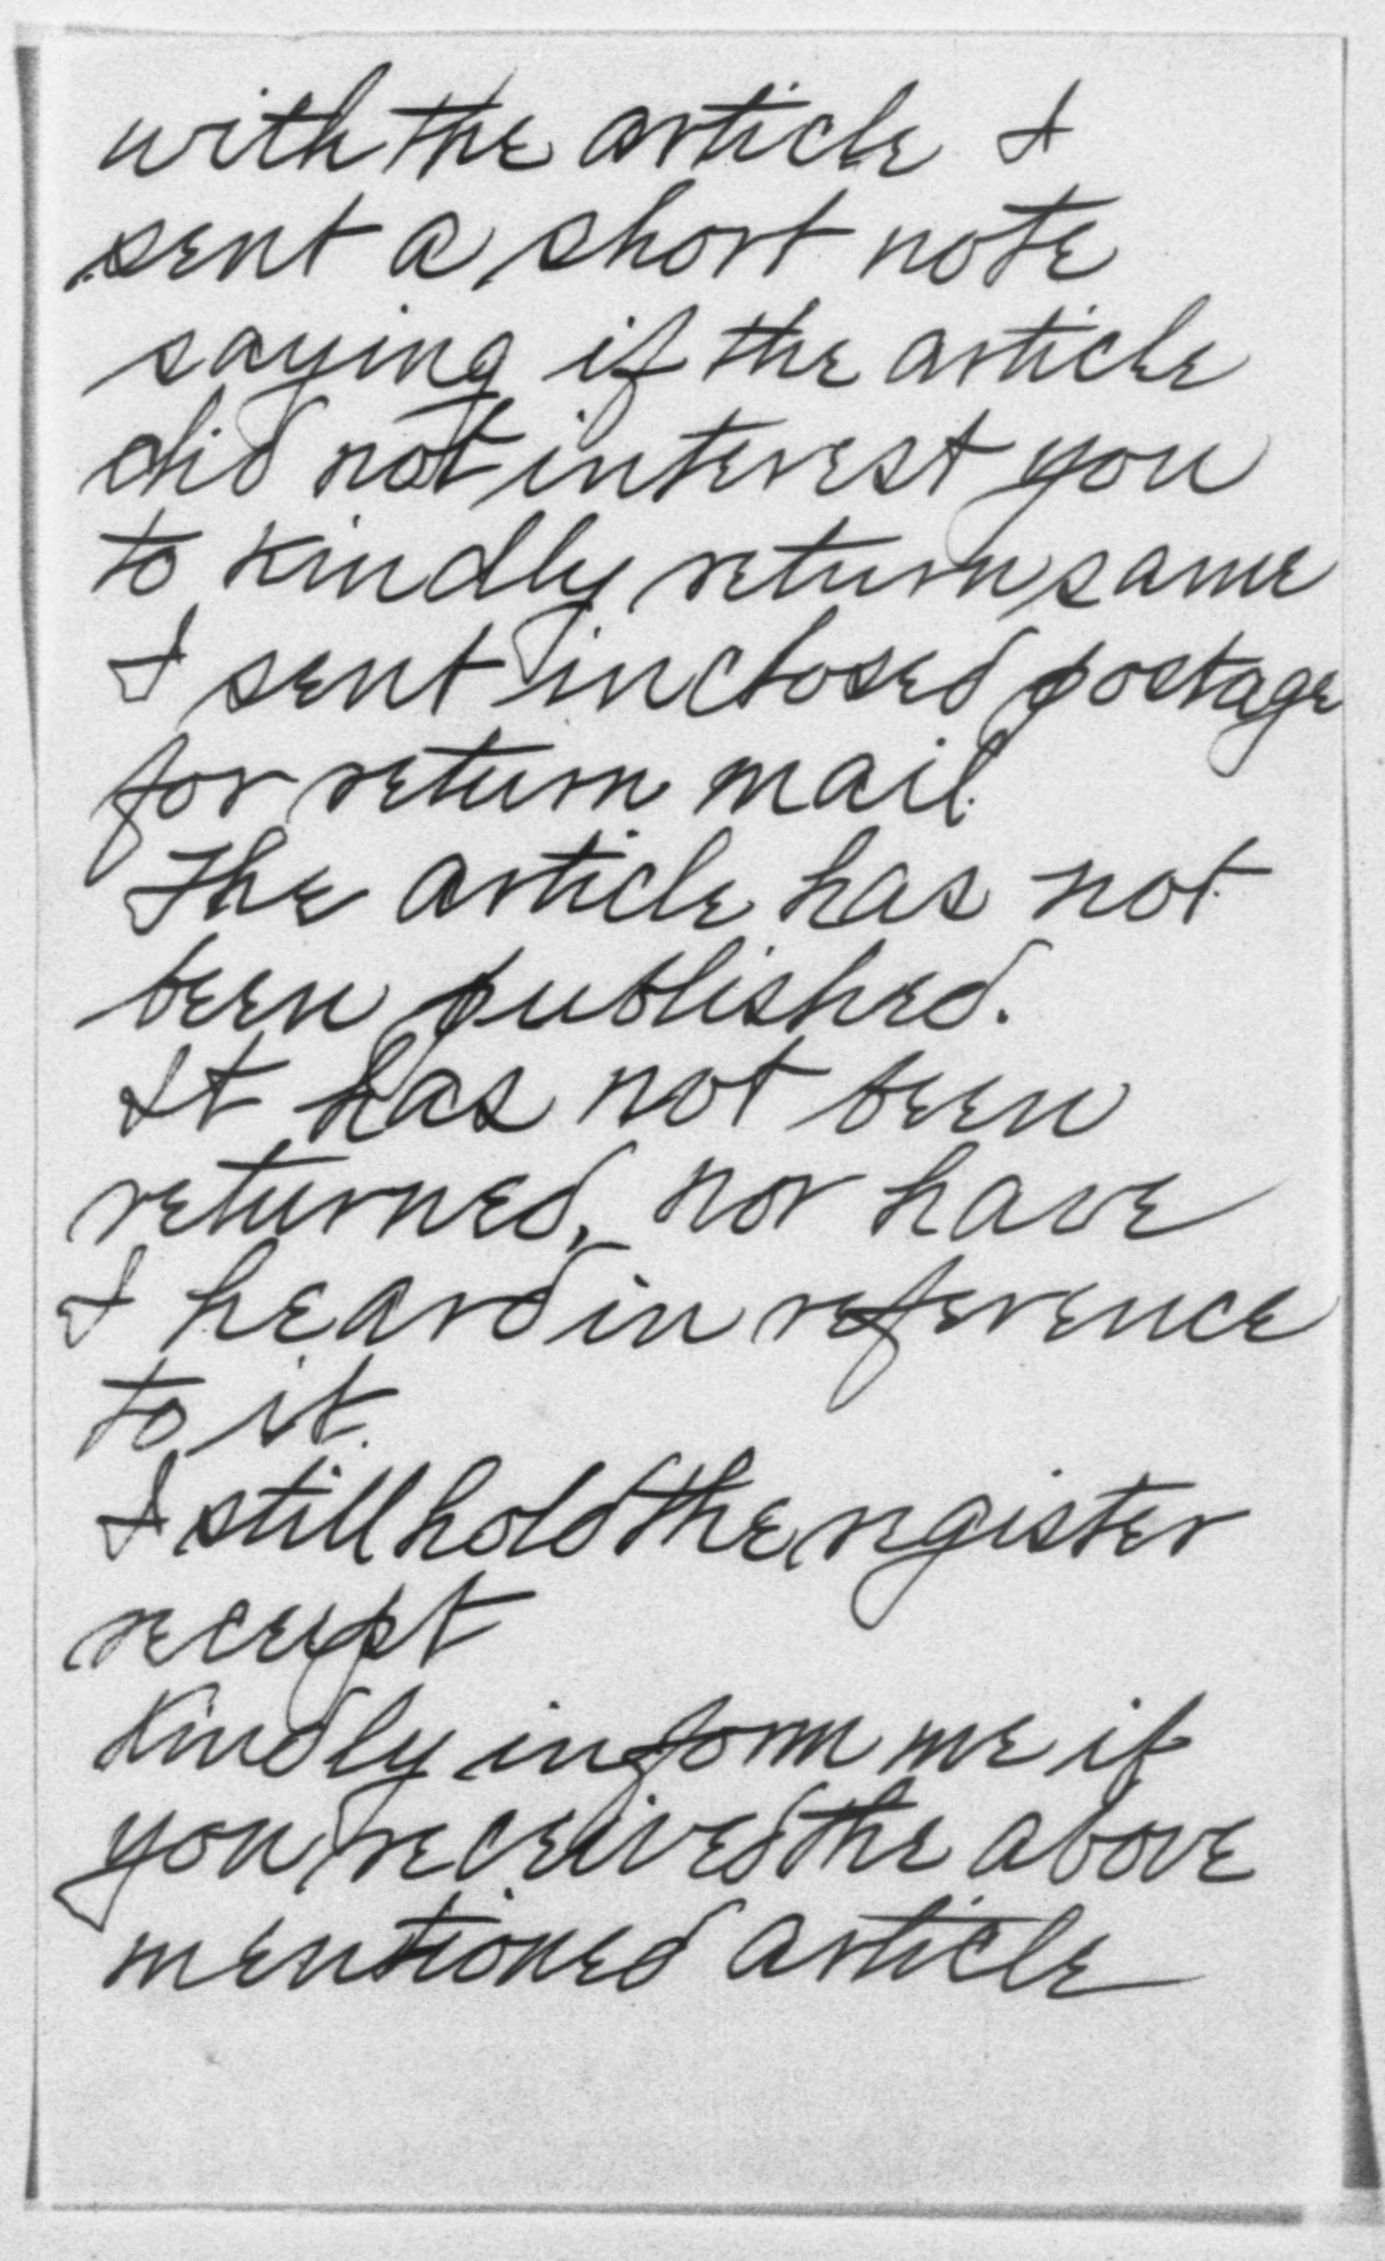 with the article I
sent a short note
saying if the article
did not interest you
to kindly return same
I sent inclosed postage
for return mail.
The article has not
been published.
It has not been
returned, nor have
I heard in reference
to it.
I still hold the register
receipt
Kindly inform me if
you received the above
mentioned article